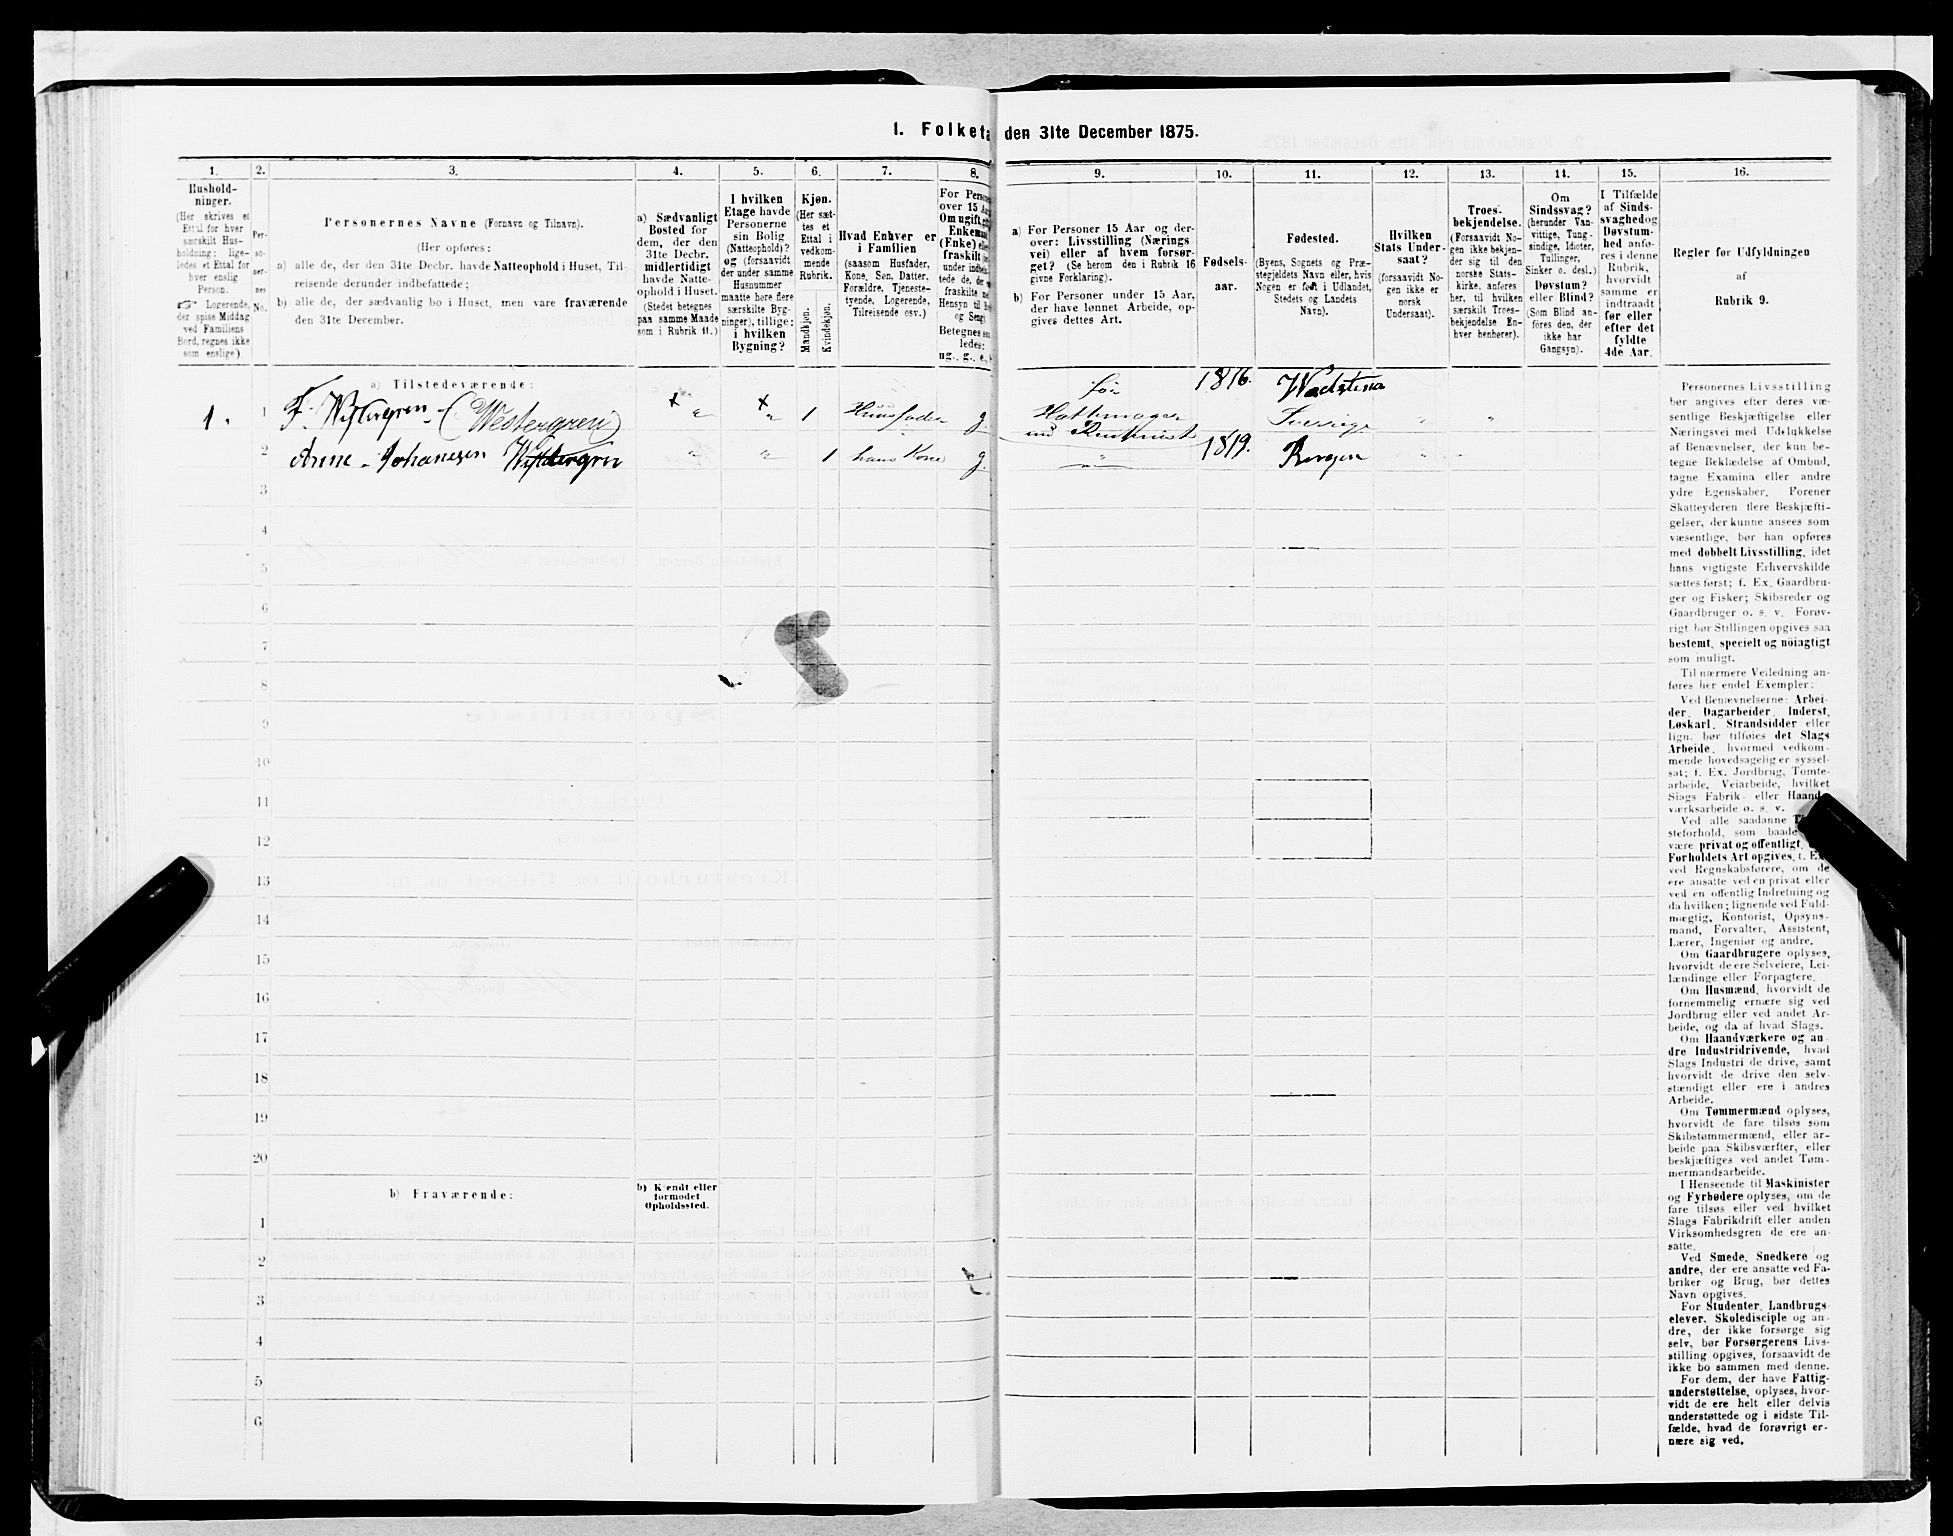 1. Folketæ
den 31te December 1875.
1.
2.
3.
4.
5.
6.
7.
8.
9.
10.
11.
12.
13.
14.
15.
16.
Hushold-
ninger.
(Her skrives et
Ettal for hver
særskilt Hus-
holdning; lige-
ledes et Ettal for
hver enslig
Person.
☞ Logerende,
der spise Middag
ved Familiens
Bord, regnes ikke
som enslige)
Per-
so-
ner-
nes
No.
Personernes Navne (Fornavn og Tilnavn).
(Her opføres:
a) alle de, der den 31te Decbr. havde Natteophold i Huset, Til-
reisende derunder indbefattede;
b) alle de, der sædvanlig bo i Huset, men vare fraværende
den 31te December.
a) Sædvanligt
Bosted for
dem, der den
31te Decbr.
midlertidigt
havde Natte-
ophold i Huset.
(Stedet betegnes
paa samme Maade
som i Rubrik 11.)
I hvilken
Etage havde
Personerne
sin Bolig
(Natteophold)?
og (forsaavidt
der under samme
Husnummer
maatte høre flere
særskilte Byg-
ninger), tillige:
i hvilken
Bygning?
Kjøn.
(Her sæt-
tes et
Ettal i
vedkom-
mende
Rubrik.
Mandkjøn.
Kvindekjøn.
Hvad Enhver er
i Familien
(saasom Husfader,
Kone, Søn, Datter,
Forældre, Tjeneste-
tyende, Logerende,
Tilreisende osv.)
For Perso
over 15 Aa
Om ugift, g
Enkema
(Enke) elle
fraskilt
under indbe
tede de, der
fraskilte
Hensyn til B
og Seng)
Betegnes saa
ledes:
ug., g., e.,
a) For Personer 15 Aar og der-
over: Livsstilling (Nærings
vei) eller af hvem forsør-
get? (Se herom den i Rubrik 16
givne Forklaring).
b) For Personer under 15 Aar,
der have lønnet Arbeide, op-
gives dettes Art.
Fødsels-
aar.
Fødested.
(Byens, Sognets og Præ-
stegjeldets Navn eller, hvis
Nogen er født i Udlandet,
Stedets og Landets
Navn).
Hvilken
Stats Under-
saat?
(forsaavidt No-
gen ikke er
norsk
Undersaat).
Troes-
bekjendelse.
(Forsaavidt No-
gen ikke bekjen-
der sig til den
norske Stats-
kirke, anføres
her, til hvilken
særskilt Troes-
bekjendelse En-
hver henhører).
Om
Sindssvag?
(herunder Van-
vittige, Tung-
sindige, Idioter,
Tullinger,
Sinker o. desl.)
Døvstum?
eller Blind?
(Som Blind an-
føres den, der
ikke har
Gangsyn).
I Tilfælde
af Sinds-
svaghed og
Døvstum-
hed anfø-
res i denne
Rubrik,
hvorvidt
samme er
indtraadt
før eller
efter det
fyldte
4de Aar.
Regler for Udfyldningen
af
Rubrik 9.
a) Tilstedeværende:
1.
1 F. Westergren - (Westergren) × " × " 1 Huusfader g
før
Hattemager
nu Rentenist
1816. Wadstena
Sverrige " "
2 Anne - Johanesen Westergren " " 1 hans Kone g. " 1819. Bergen " "
3
4
5
6
7
8
9
10
11
12
13
14
15
16
17
18
19
20
b) Fraværende:
b) Kjendt eller
formodet
Opholdssted.
1
2
3
4
5
6
Personernes Livsstilling
bør angives efter deres væ-
sentlige Beskjæftigelse eller
Næringsvei med Udelukkelse
af Benævnelser, der kun be-
tegne Beklædelse af Ombud,
tagne Examina eller andre
ydre Egenskaber. Forener
Skatteyderen flere Beskjæfti-
gelser, der kunne ansees som
væsentlige, bør han opføres
med dobbelt Livsstilling, idet
hans vigtigste Erhvervskilde
sættes først; f. Ex. Gaardbru-
ger og Fisker; Skibsreder og
Gaardbruger o. s. v. Forøv-
rigt bør Stillingen opgives saa
bestemt, specielt og nöiagtigt
som muligt.
Til nærmere Veiledning an-
føres her endel Exempler:
Ved Benævnelserne: Arbei-
der, Dagarbeider, Inderst,
Løskarl, Strandsidder eller
lign. bør tilføies det Slags
Arbeide, hvormed vedkom-
mende hovedsagelig er syssel-
sat; f. Ex. Jordbrug, Tomte-
arbeide, Veiarbeide, hvilket
Slags Fabrik- eller Haand-
værksarbeide o. s. v.
Ved alle saadanne
steforhold, som baade
være privat og offentligt,
Forholdets Art opgives, f. Ex.
ved Regnskabsførere, om de
ere ansatte ved en privat eller
ved en offentlig Indretning og
da hvilken; lignende ved Fuld-
mægtig, Kontorist, Opsyns-
mand, Forvalter, Assistent,
Lærer, Ingeniør og andre.
Om Gaardbrugere oplyses,
hvorvidt de ere Selveiere, Lei-
lændinge eller Forpagtere.
Om Husmænd, hvorvidt de
fornemmelig ernære sig ved
Jordbrug eller ved andet Ar-
beide, og da af hvad Slags.
Om Haandværkere og an-
dre Industridrivende, hvad
Slags Industri de drive, samt
hvorvidt de drive den selv-
stændigt eller ere i andres
Arbeide.
Om Tømmermænd oplyses,
hvorvidt de fare tilsøs som
Skibstømmermænd, eller ar-
beide paa Skibsværfter, eller
beskjæftiges ved andet Tøm-
mermandsarbeide.
I Henseende til Maskinister
og Fyrbødere oplyses, om de
fare tilsøs eller ved hvilket
Slags Fabrikdrift eller anden
Virksomhedsgren de ere an-
satte.
Ved Smede, Snedkere og
andre, der ere ansatte ved Fa-
briker og Brug, bør dettes
Navn opgives.
For Studenter, Landbrugs-
elever, Skoledisciple og an-
dre, der ikke forsørge sig
selv, bør Forsørgerens Livs-
stilling opgives, forsaavidt de
ikke bo sammen med denne.
For dem, der have Fattig-
understøttelse, oplyses, hvor-
vidt de ere helt eller delvis
understøttede og i sidste Til-
fælde, hvad de forøvrigt er-
nære sig ved.